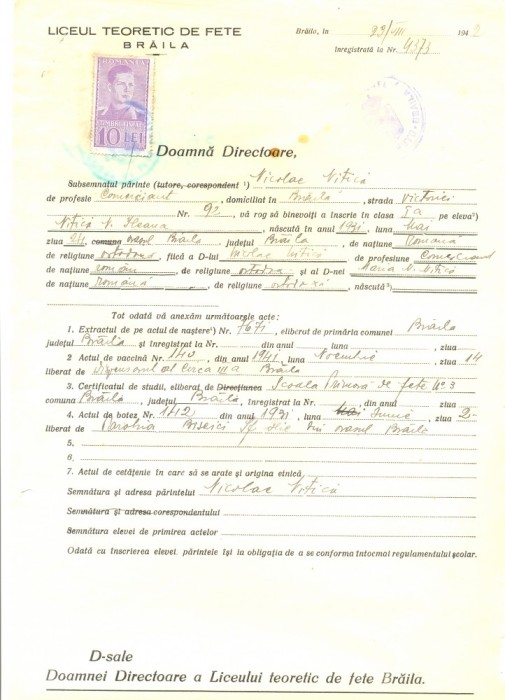 LICEUL TEORETIC DE FETE
BRĂILA
Brăila, în 29/VIII 194
Înregistrată la Nr. 4373
ROMANIA
10 LEI
Doamnă Directoare,
Subsemnatul părinte (tutore, corespondent ¹) Nicolae Nitică
de profesie Comerciant, domiciliat în Brăila, strada Victoriei
Nr. 92 vă rog să binevoiți a înscrie în clasa I-a pe eleva²)
Nitică N. Ileana, născută în anul 1931, luna Mai
ziua 24, comuna orașul Brăila județul Brăila, de națiune Română
de religiune ortodoxă, fiică a D-lui Nicolae Nitică de profesiune Comerciant
de națiune român, de religiune ortodoxă și al D-nei Maria N. Nitică
de națiune Română, de religiune ortodoxă, născută³)
Tot odată vă anexăm următoarele acte:
1. Extractul de pe actul de naștere⁴) Nr. 1671, eliberat de primăria comunei Brăila
județul Brăila și înregistrat la Nr. din anul, luna, ziua
2 Actul de vaccină Nr. 140, din anul 1941, luna Noembrie, ziua 14
liberat de Dispensarul al Circa III a Brăila
3. Certificatul de studii, eliberat de Direcțiunea Școala Primară de fete Nº 3
comuna Brăila, județul Brăila, înregistrat la Nr., din anul, ziua
4. Actul de botez Nr. 142 din anul 1931, luna Mai Iunie, ziua 2
liberat de Parohia Bisericii Sf. Ilie din orașul Brăila
5.
6.
7. Actul de cetățenie în care să se arate și origina etnică,
Semnătura și adresa părintelui Nicolae Nitică
Semnătura și adresa corespondentului
Semnătura elevei de primirea actelor
Odată cu înscrierea elevei, părintele își ia obligația de a se conforma întocmai regulamentului școlar.
D-sale
Doamnei Directoare a Liceului teoretic de fete Brăila.